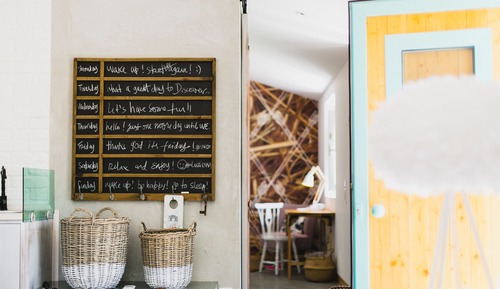 Monday wake up! start again! :)
Tuesday what a great day to Discover...
Wednesday Let's have some fun!!
Thursday hello! just one more day until we..
Friday thanks god it's friday!
Saturday Relax and enjoy!
Sunday wake up! be happy! go to sleep!